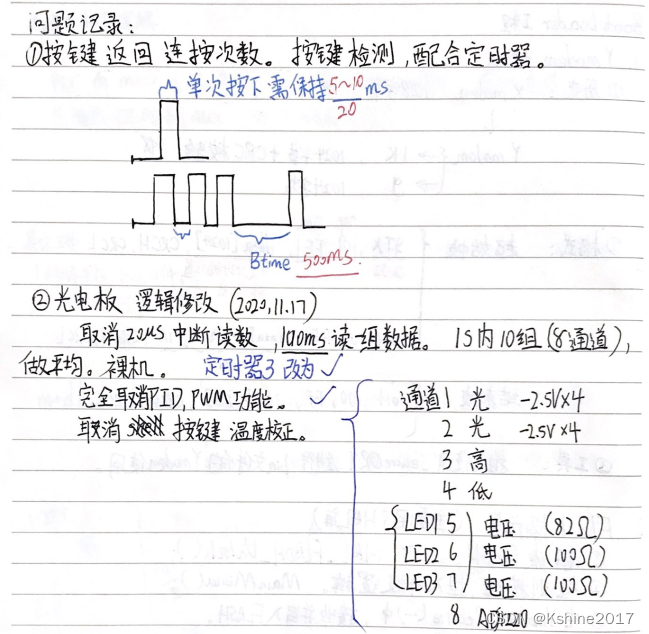 问题记录:
①按键返回连按次数。按键检测,配合定时器。
单次按下需保持 5~10 ms
20
Btime 500ms.
②光电板 逻辑修改 (2020,11.17)
取消20us中断读数,100ms读一组数据。1S内10组(8通道),
做平均。裸机。 定时器3 改为 ✓
完全取消PID,PWM功能。 ✓
取消 按键 温度校正。
通道1 光 -2.5V×4
2 光 -2.5V×4
3 高
4 低
LED1 5 电压 (82Ω)
LED2 6 电压 (100Ω)
LED3 7 电压 (100Ω)
8
@Kshine2017